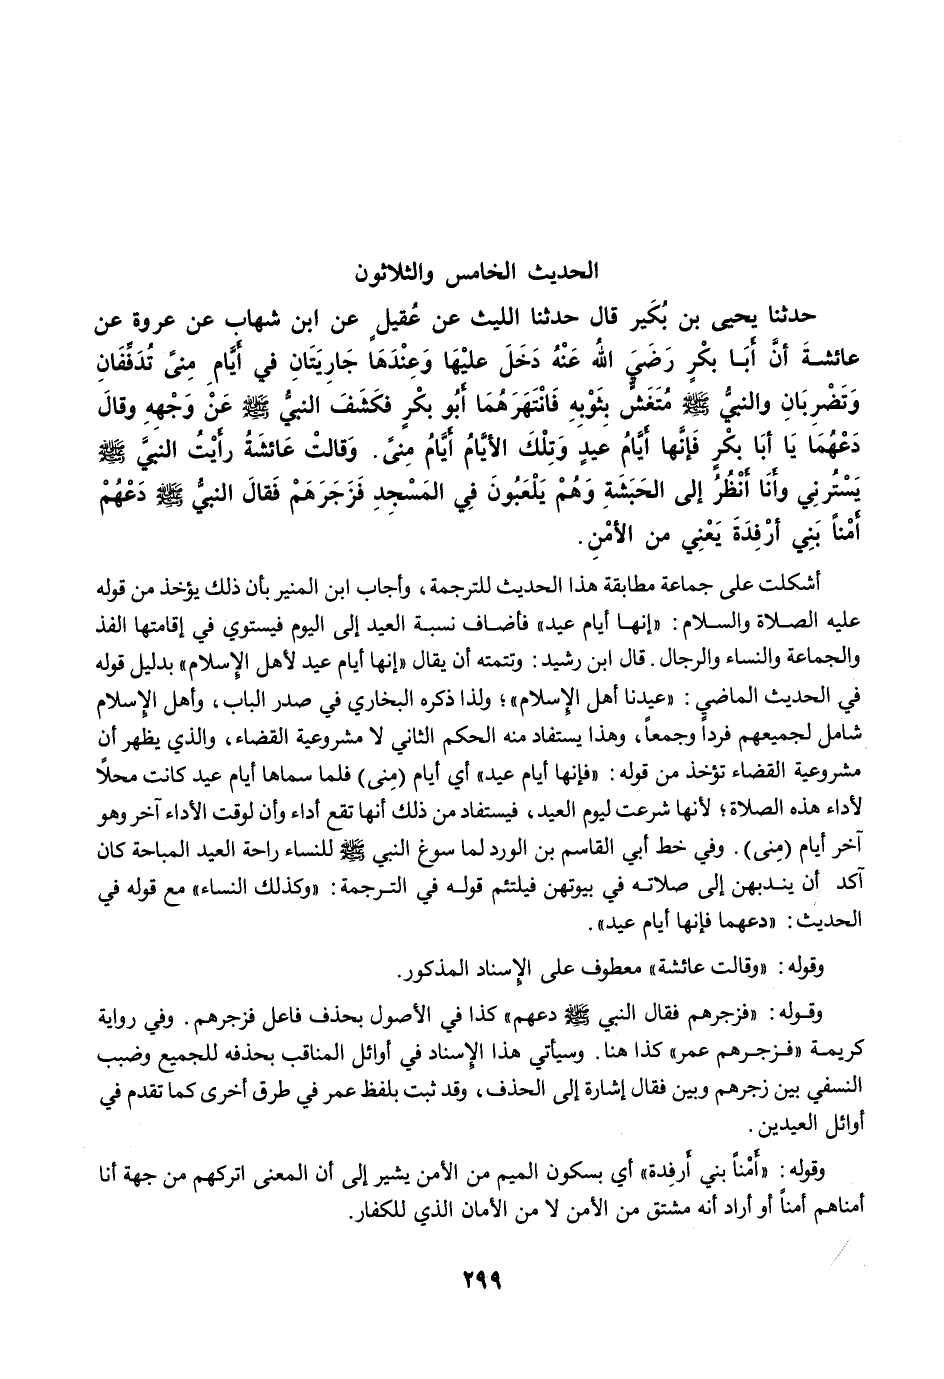 الحديث الخامس والثلاثون
حدثنا يحيى بن بُكَير قال حدثنا الليث عن عُقيلٍ عن ابن شهاب عن عروة عن
عائشةَ أنَّ أَبَا بكْرٍ رَضَيَ اللهُ عَنْهُ دَخَلَ عليْهَا وَعِنْدَهَا جَارِيَتَانِ في أيَّامِ مِنىً تُدَفِّفَانِ
وَتَضْرِبَانِ والنبيُّ ﷺ مُتَغَشٍّ بِثَوْبِهِ فَانْتَهَرَهُمَا أَبُو بكْرٍ فكَشَفَ النبيُّ ﷺ عَنْ وَجْهِهِ وقالَ
دَعْهُمَا يَا أبَا بكْرٍ فَإنَّها أيَّامُ عيدٍ وَتِلْكَ الأيَّامُ أيَّامُ مِنىً. وَقالتْ عَائشَةُ رأيْتُ النبيَّ ﷺ
يَسْتُرنِي وأنَا أنْظُرُ إلى الحَبَشَةِ وَهُمْ يَلْعَبُونَ فِي المَسْجِدِ فَزَجَرَهَمْ فَقالَ النبيُّ ﷺ دَعْهُمْ
أَمْناً بَنِي أرْفِدَةَ يَعْنِي من الأمْنِ.
أشكلت على جماعة مطابقة هذا الحديث للترجمة، وأجاب ابن المنير بأن ذلك يؤخذ من قوله
عليه الصلاة والسلام: «إنها أيام عيد» فأضاف نسبة العيد إلى اليوم فيستوي في إقامتها الفذ
والجماعة والنساء والرجال. قال ابن رشيد: وتتمته أن يقال «إنها أيام عيد لأهل الإسلام» بدليل قوله
في الحديث الماضي: «عيدنا أهل الإسلام»؛ ولذا ذكره البخاري في صدر الباب، وأهل الإسلام
شامل لجميعهم فرداً وجمعاً، وهذا يستفاد منه الحكم الثاني لا مشروعية القضاء، والذي يظهر أن
مشروعية القضاء تؤخذ من قوله: «فإنها أيام عيد» أي أيام (مِنى) فلما سماها أيام عيد كانت محلاً
لأداء هذه الصلاة؛ لأنها شرعت ليوم العيد، فيستفاد من ذلك أنها تقع أداء وأن لوقت الأداء آخر وهو
آخر أيام (مِنى). وفي خط أبي القاسم بن الورد لما سوغ النبي ﷺ للنساء راحة العيد المباحة كان
آكد أن يندبهن إلى صلاته في بيوتهن فيلتئم قوله في الترجمة: «وكذلك النساء» مع قوله في
الحديث: «دعهما فإنها أيام عيد».
وقوله: «وقالت عائشة» معطوف على الإسناد المذكور.
وقوله: «فزجرهم فقال النبي ﷺ دعهم» كذا في الأصول بحذف فاعل فزجرهم. وفي رواية
كريمة «فزجرهم عمر» كذا هنا. وسيأتي هذا الإسناد في أوائل المناقب بحذفه للجميع وضبب
النسفي بين زجرهم وبين فقال إشارة إلى الحذف، وقد ثبت بلفظ عمر في طرق أخرى كما تقدم في
أوائل العيدين.
وقوله: «أَمْناً بني أَرفِدة» أي بسكون الميم من الأمن يشير إلى أن المعنى اتركهم من جهة أنا
أمناهم أمناً أو أراد أنه مشتق من الأمن لا من الأمان الذي للكفار.
٢٩٩